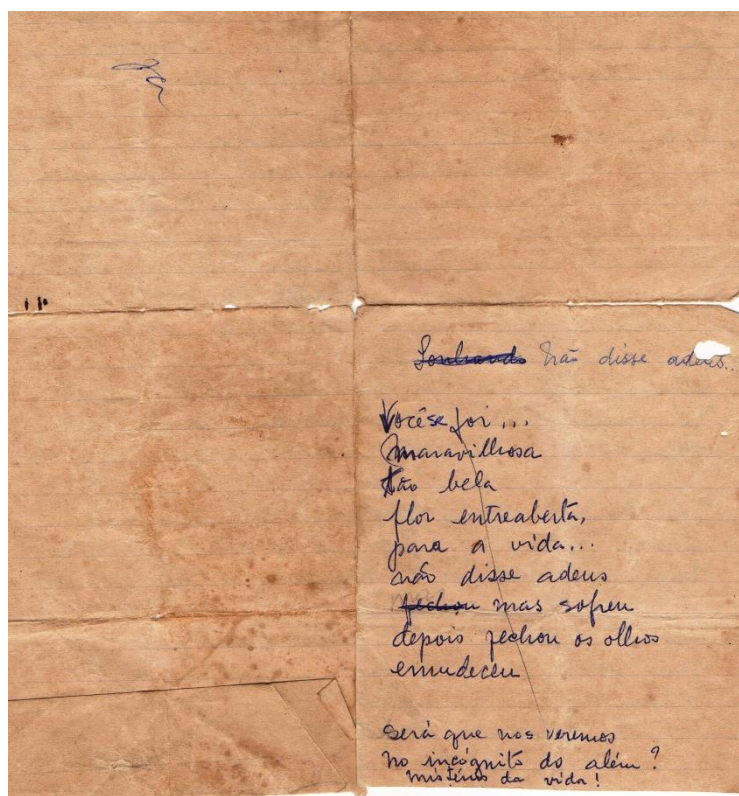 Não disse adeus..
Você se foi...
Maravilhosa
Tão bela
flor entreaberta,
para a vida...
não disse adeus
fechou mas sofreu
depois fechou os olhos
emudeceu
será que nos veremos
no incógnito do além?
mistérios da vida!